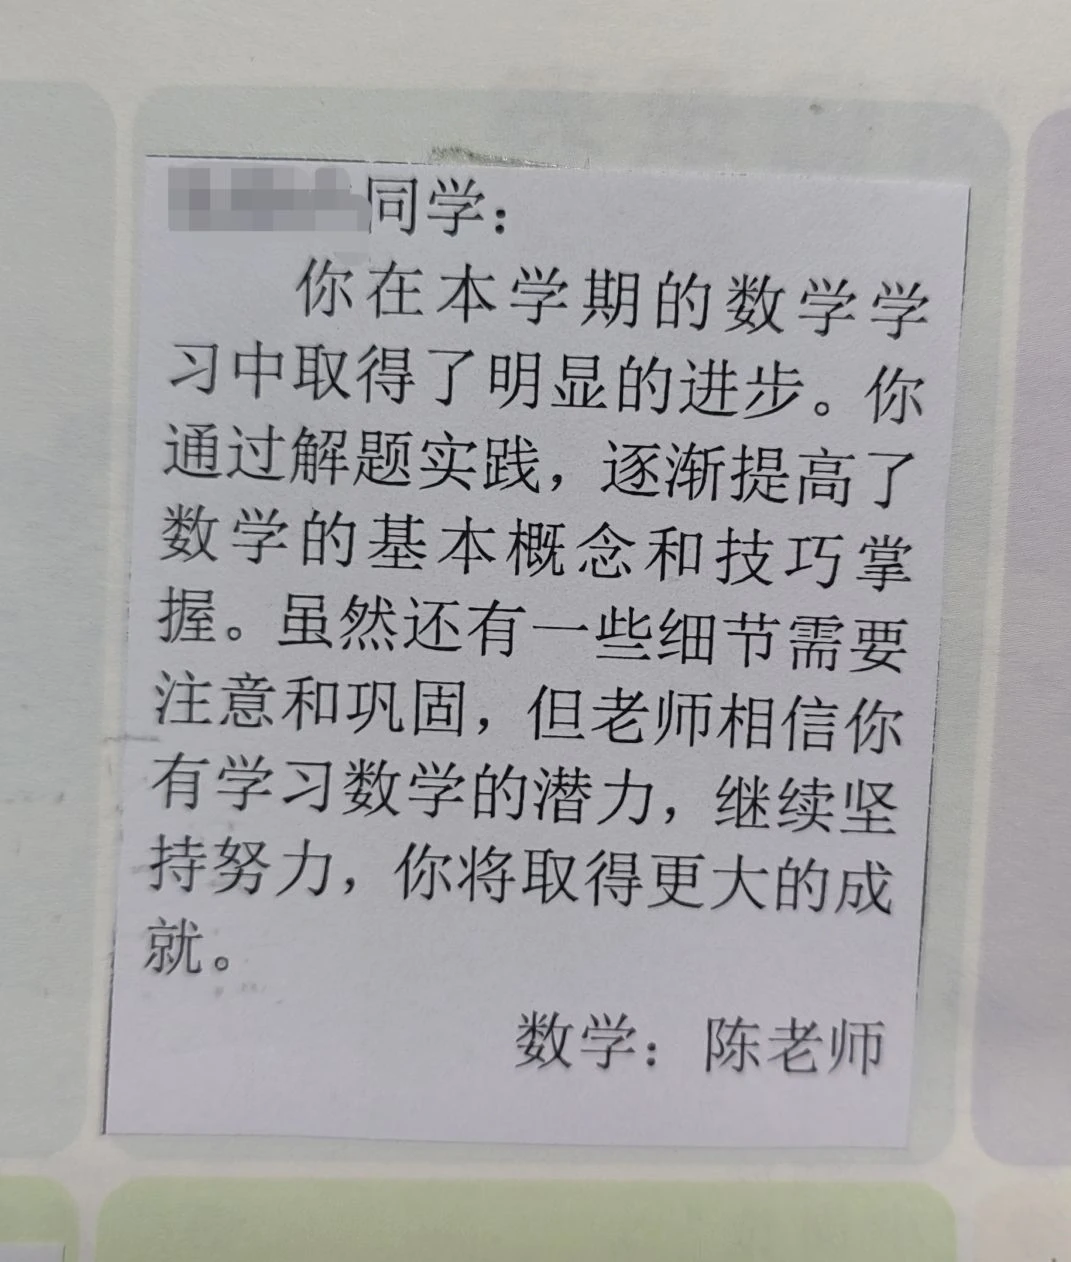 同学：
你在本学期的数学学
习中取得了明显的进步。你
通过解题实践，逐渐提高了
数学的基本概念和技巧掌
握。虽然还有一些细节需要
注意和巩固，但老师相信你
有学习数学的潜力，继续坚
持努力，你将取得更大的成
就。
数学：陈老师